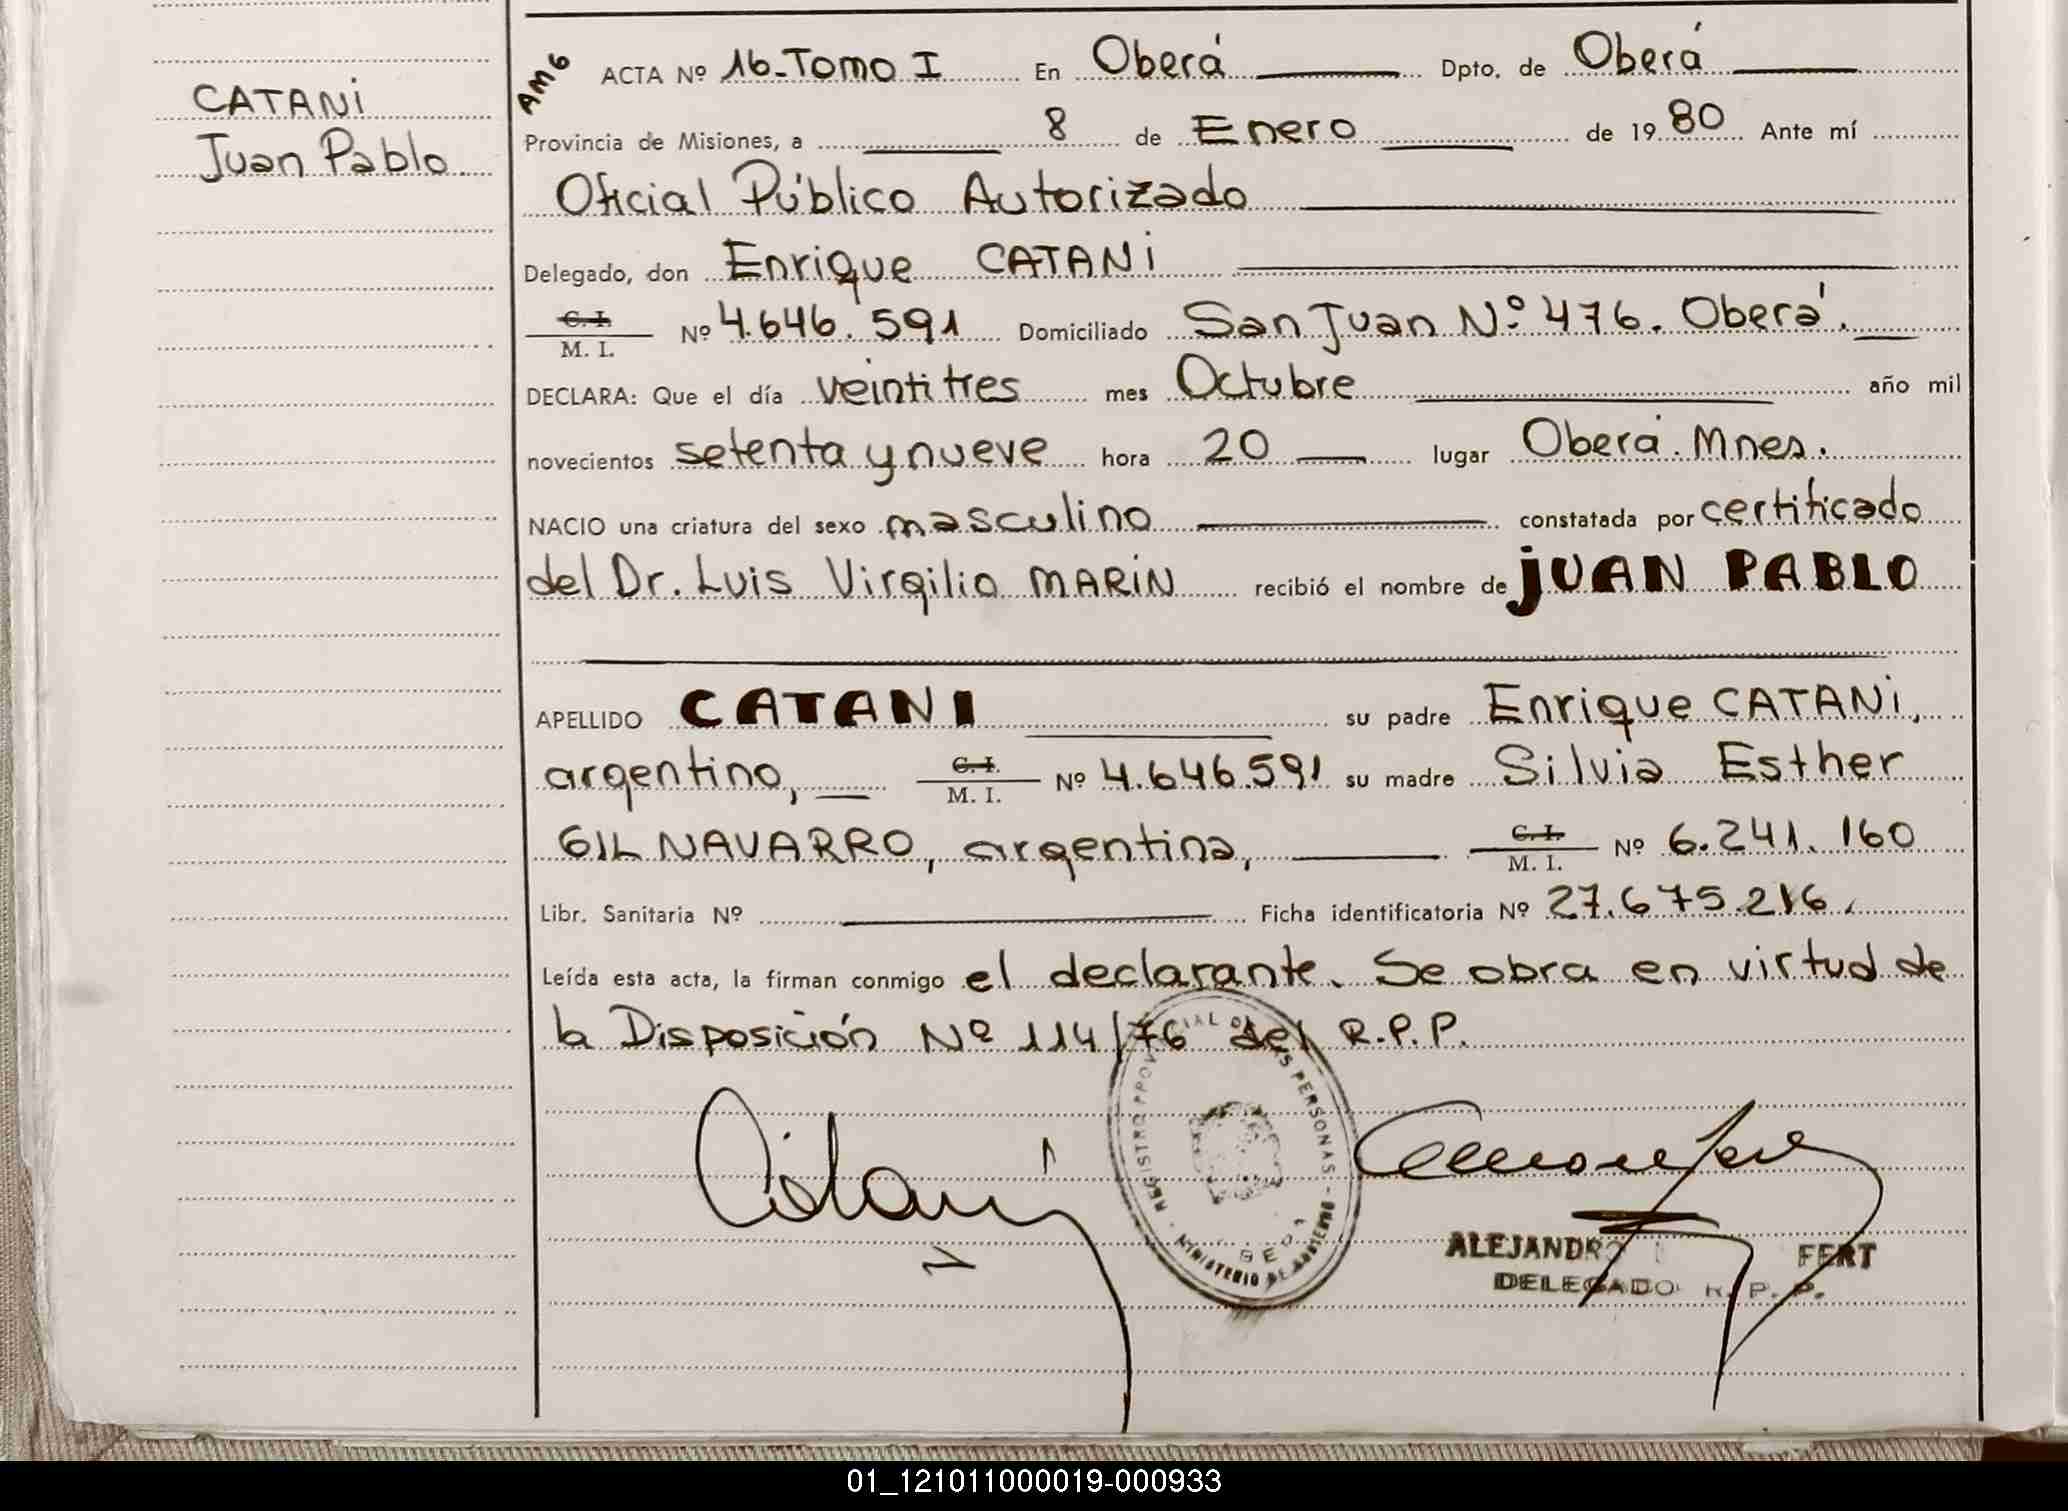 CATANI
Juan Pablo.
AMG
ACTA Nº 16-Tomo I En Oberá Dpto. de Oberá
Provincia de Misiones, a 8 de Enero de 1980 Ante mí
Oficial Público Autorizado
Delegado, don Enrique CATANI
C. I.
M. I. Nº 4.646.591 Domiciliado San Juan Nº 476. Oberá.
DECLARA: Que el día veintitres mes Octubre año mil
novecientos setenta y nueve hora 20 lugar Oberá. Mnes.
NACIO una criatura del sexo masculino constatada por certificado
del Dr. Luis Virgilio MARIN recibió el nombre de JUAN PABLO
APELLIDO CATANI su padre Enrique CATANI,
argentino, C. I. M. I. Nº 4.646.591 su madre Silvia Esther
GIL NAVARRO, argentina, C. I. M. I. Nº 6.241.160
Libr. Sanitaria Nº Ficha identificatoria Nº 27.675.216.
Leída esta acta, la firman conmigo el declarante. Se obra en virtud de
la Disposición Nº 114/76 del R.P.P.
Catani
REGISTRO PROVINCIAL DE LAS PERSONAS - MINISTERIO DE GOBIERNO
ALEJANDRO FERT
DELEGADO R. P. P.
01_121011000019-000933